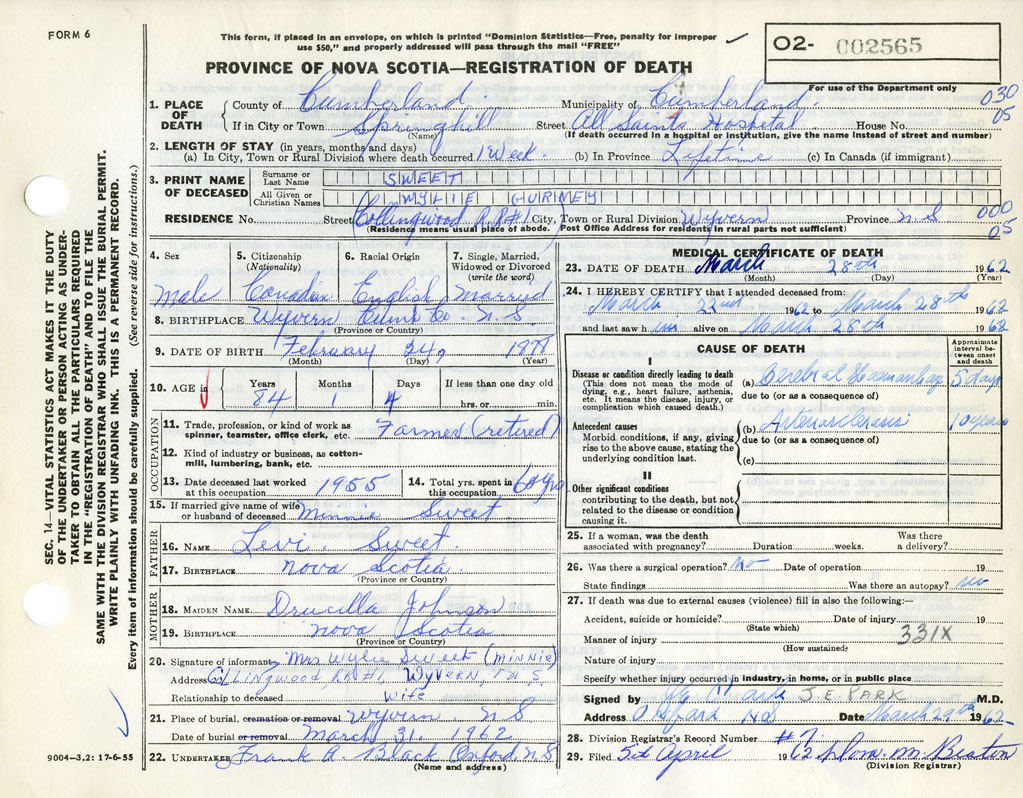 FORM 6
This form, if placed in an envelope, on which is printed "Dominion Statistics—Free, penalty for improper
use $50," and properly addressed will pass through the mail "FREE"
O2- 002565
PROVINCE OF NOVA SCOTIA—REGISTRATION OF DEATH
For use of the Department only
030
05
1. PLACE OF DEATH County of Cumberland. Municipality of Cumberland.
If in City or Town Springhill Street All Saints Hospital House No.
(Name) (If death occurred in a hospital or institution, give the name instead of street and number)
2. LENGTH OF STAY (in years, months and days)
(a) In City, Town or Rural Division where death occurred 1 Week. (b) In Province Lifetime (c) In Canada (if immigrant)
3. PRINT NAME OF DECEASED Surname or Last Name SWEET
All Given or Christian Names WYLIE GURNEY
RESIDENCE No. Street Collingwood R.R#1 City, Town or Rural Division Wyvern Province N S 000
05
(Residence means usual place of abode. Post Office Address for residents in rural parts not sufficient)
4. Sex 5. Citizenship (Nationality) 6. Racial Origin 7. Single, Married, Widowed or Divorced (write the word)
Male Canadian English Married
8. BIRTHPLACE Wyvern Cumb Co. N. S
(Province or Country)
9. DATE OF BIRTH February 24,
(Month) (Day) (Year)
10. AGE in Years Months Days If less than one day old
84 1 4 hrs. or min.
OCCUPATION
11. Trade, profession, or kind of work as spinner, teamster, office clerk, etc. Farmer (retired)
12. Kind of industry or business, as cotton-mill, lumbering, bank, etc.
13. Date deceased last worked at this occupation 1955 14. Total yrs. spent in this occupation 60 yrs
15. If married give name of wife or husband of deceased Minnie Sweet
FATHER
16. NAME Levi. Sweet.
17. BIRTHPLACE Nova Scotia
(Province or Country)
MOTHER
18. MAIDEN NAME Drucilla Johnson
19. BIRTHPLACE Nova Scotia
(Province or Country)
20. Signature of informant Mrs Wylie Sweet (Minnie)
Address Collingwood, RR#1, Wyvern, N.S,
Relationship to deceased Wife
21. Place of burial, cremation or removal Wyvern N S
Date of burial or removal March 31, 1962
22. UNDERTAKER Frank A. Black Oxford N.S
(Name and address)
MEDICAL CERTIFICATE OF DEATH
23. DATE OF DEATH March 28th 1962
(Month) (Day) (Year)
24. I HEREBY CERTIFY that I attended deceased from:
March 22nd 1962 to March 28th 1962
and last saw him alive on March 28th 1962
CAUSE OF DEATH
Approximate interval between onset and death
I
Disease or condition directly leading to death
(This does not mean the mode of dying, e.g., heart failure, asthenia, etc. It means the disease, injury, or complication which caused death.)
(a) Cerebral Haemorrhage 5 days
due to (or as a consequence of)
Antecedent causes
Morbid conditions, if any, giving rise to the above cause, stating the underlying condition last.
(b) Arteriosclerosis 10 years
due to (or as a consequence of)
(c)
II
Other significant conditions
contributing to the death, but not related to the disease or condition causing it.
25. If a woman, was the death associated with pregnancy? Duration weeks. Was there a delivery?
26. Was there a surgical operation? No Date of operation 19
State findings Was there an autopsy? No
27. If death was due to external causes (violence) fill in also the following:—
Accident, suicide or homicide? Date of injury 19
(State which)
Manner of injury 331X
(How sustained)
Nature of injury
Specify whether injury occurred in industry, in home, or in public place
Signed by J.E. PARK M.D.
Address Oxford NS Date March 29th 1962
28. Division Registrar's Record Number #7
29. Filed 5th April 1962 M. Beaton
(Division Registrar)
SEC. 14—VITAL STATISTICS ACT MAKES IT THE DUTY
OF THE UNDERTAKER OR PERSON ACTING AS UNDER-
TAKER TO OBTAIN ALL THE PARTICULARS REQUIRED
IN THE "REGISTRATION OF DEATH" AND TO FILE THE
SAME WITH THE DIVISION REGISTRAR WHO SHALL ISSUE THE BURIAL PERMIT.
WRITE PLAINLY WITH UNFADING INK. THIS IS A PERMANENT RECORD.
Every item of information should be carefully supplied. (See reverse side for instructions.)
9004—3.2: 17-6-55